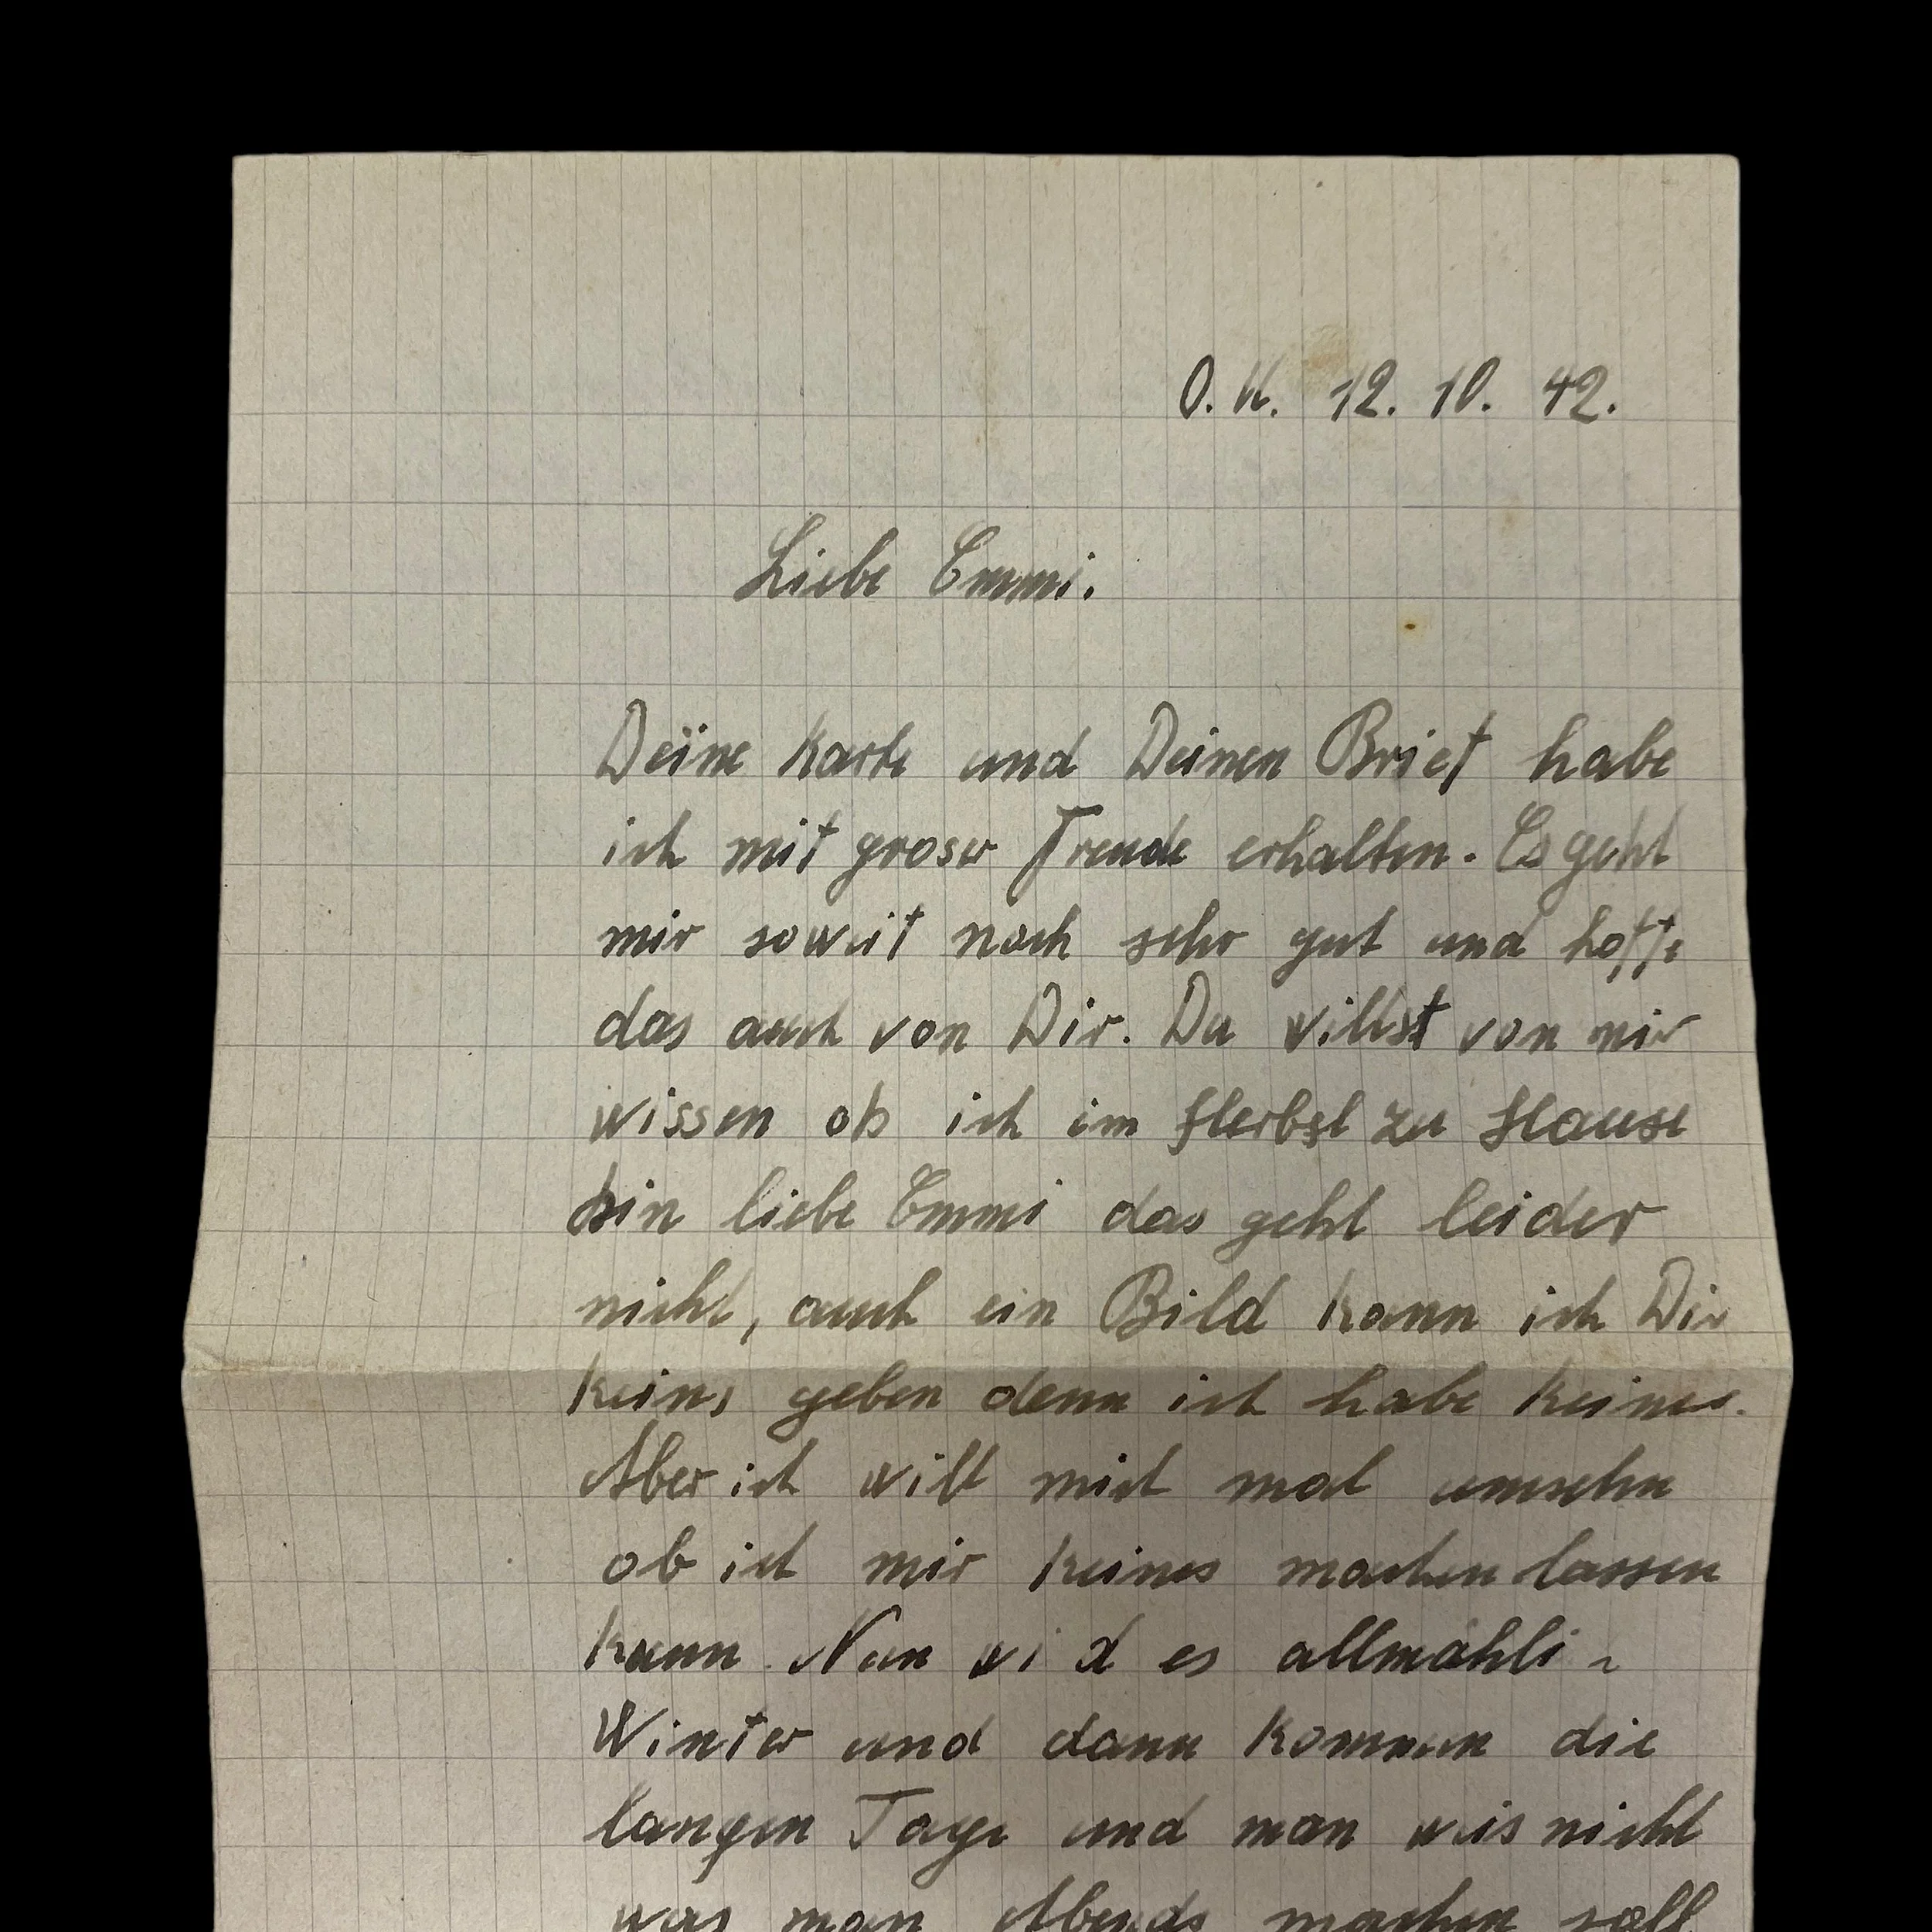 O. U. 12. 10. 42.
Liebe Emmi.
Deine Karte und Deinen Brief habe
ich mit groser Freude erhalten. Es geht
mir soweit noch sehr gut und hoffe
das auch von Dir. Du willst von mir
wissen ob ich im Herbst zu Hause
bin liebe Emmi das geht leider
nicht, auch ein Bild kann ich Dir
keins geben denn ich habe keines.
Aber ich will mich mal umsehn
ob ich mir keines machen lassen
kann. Nun wird es allmähli-
Winter und dann kommen die
langen Tage und man weis nicht
was man Abends machen soll